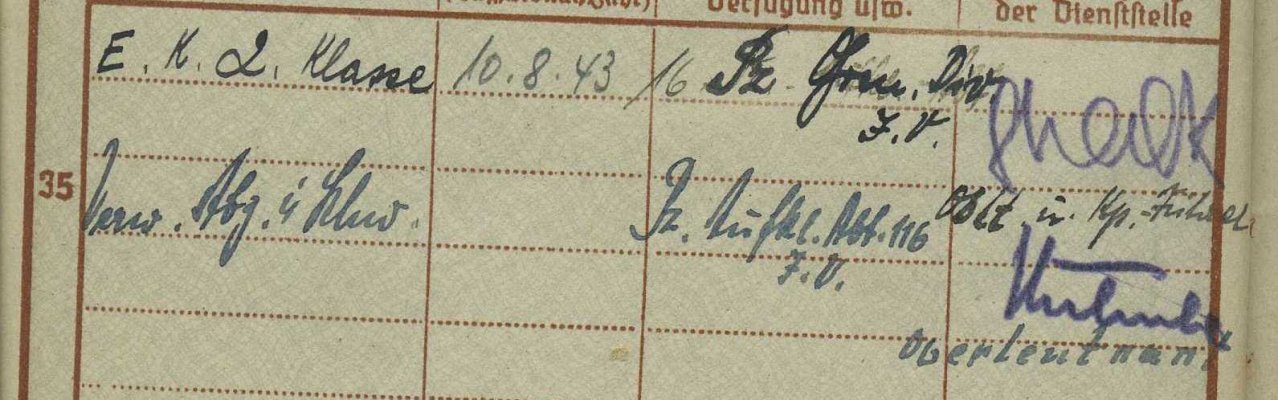 Verfügung usw. der Dienststelle
E. K. 2. Klasse 10.8.43 16 Pz. Gren. Div.
I.V.
35 Verw. Abz. i/ Schw. Pz. Aufkl. Abt. 116 Oblt. u. Kp.-Führer
I.V.
Oberleutnant